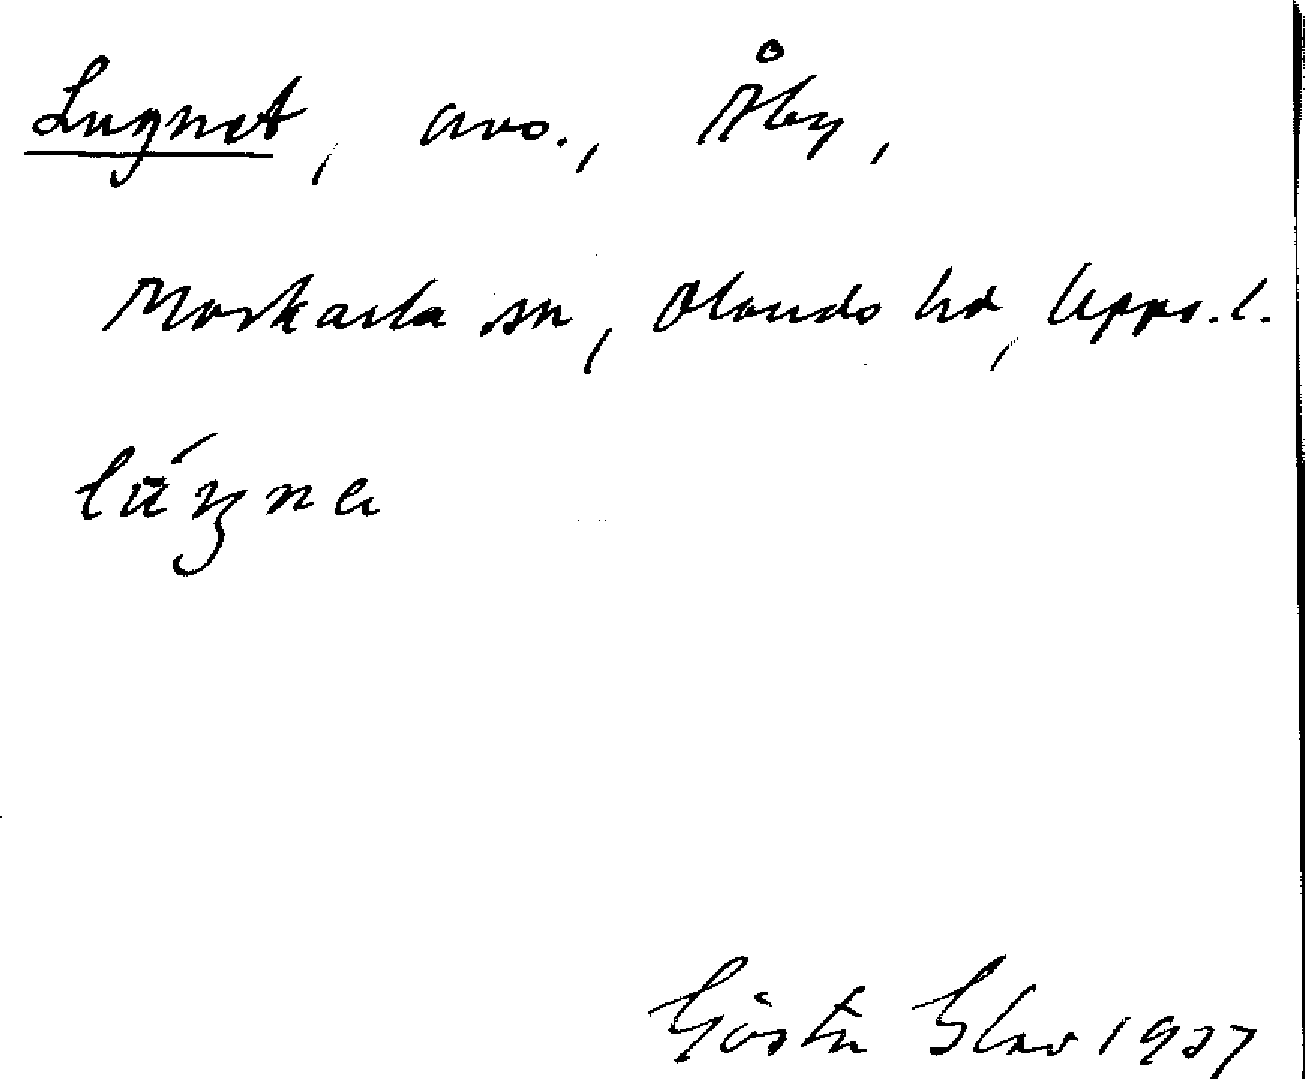 Lugnet, avs., Åby,
Morkarla sn, Olands hd, Upps. l.
Gösta 1937